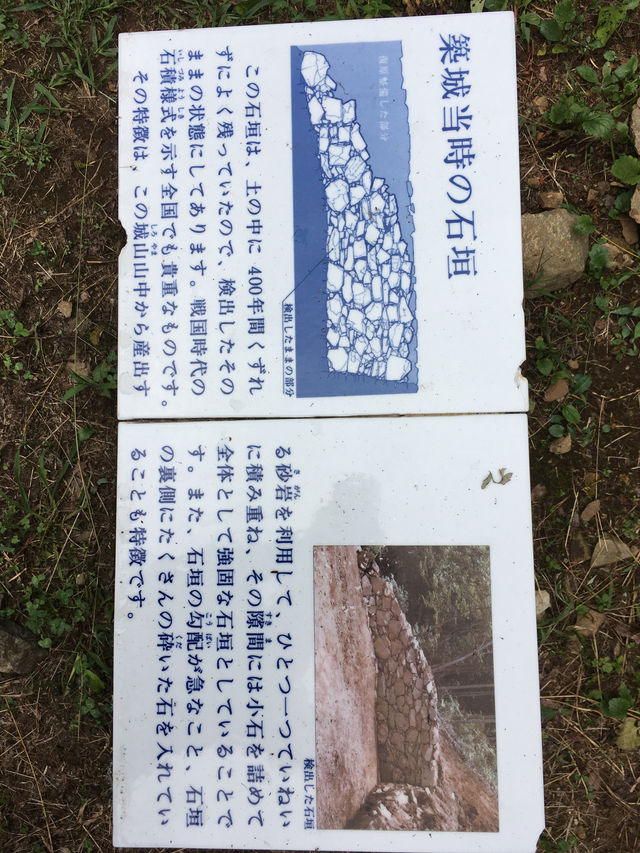 築城当時の石垣
復原整備した部分
検出したままの部分
この石垣は、土の中に400年間くずれ
ずによく残っていたので、検出したその
ままの状態にしてあります。戦国時代の
いしづみようしき
石積様式を示す全国でも貴重なものです。
しろやま
その特徴は、この城山山中から産出す
検出した石垣
さがん
る砂岩を利用して、ひとつ一つていねい
すきま
に積み重ね、その隙間には小石を詰めて
全体として強固な石垣としていることで
こうばい
す。また、石垣の勾配が急なこと、石垣
くだ
の裏側にたくさんの砕いた石を入れてい
ることも特徴です。